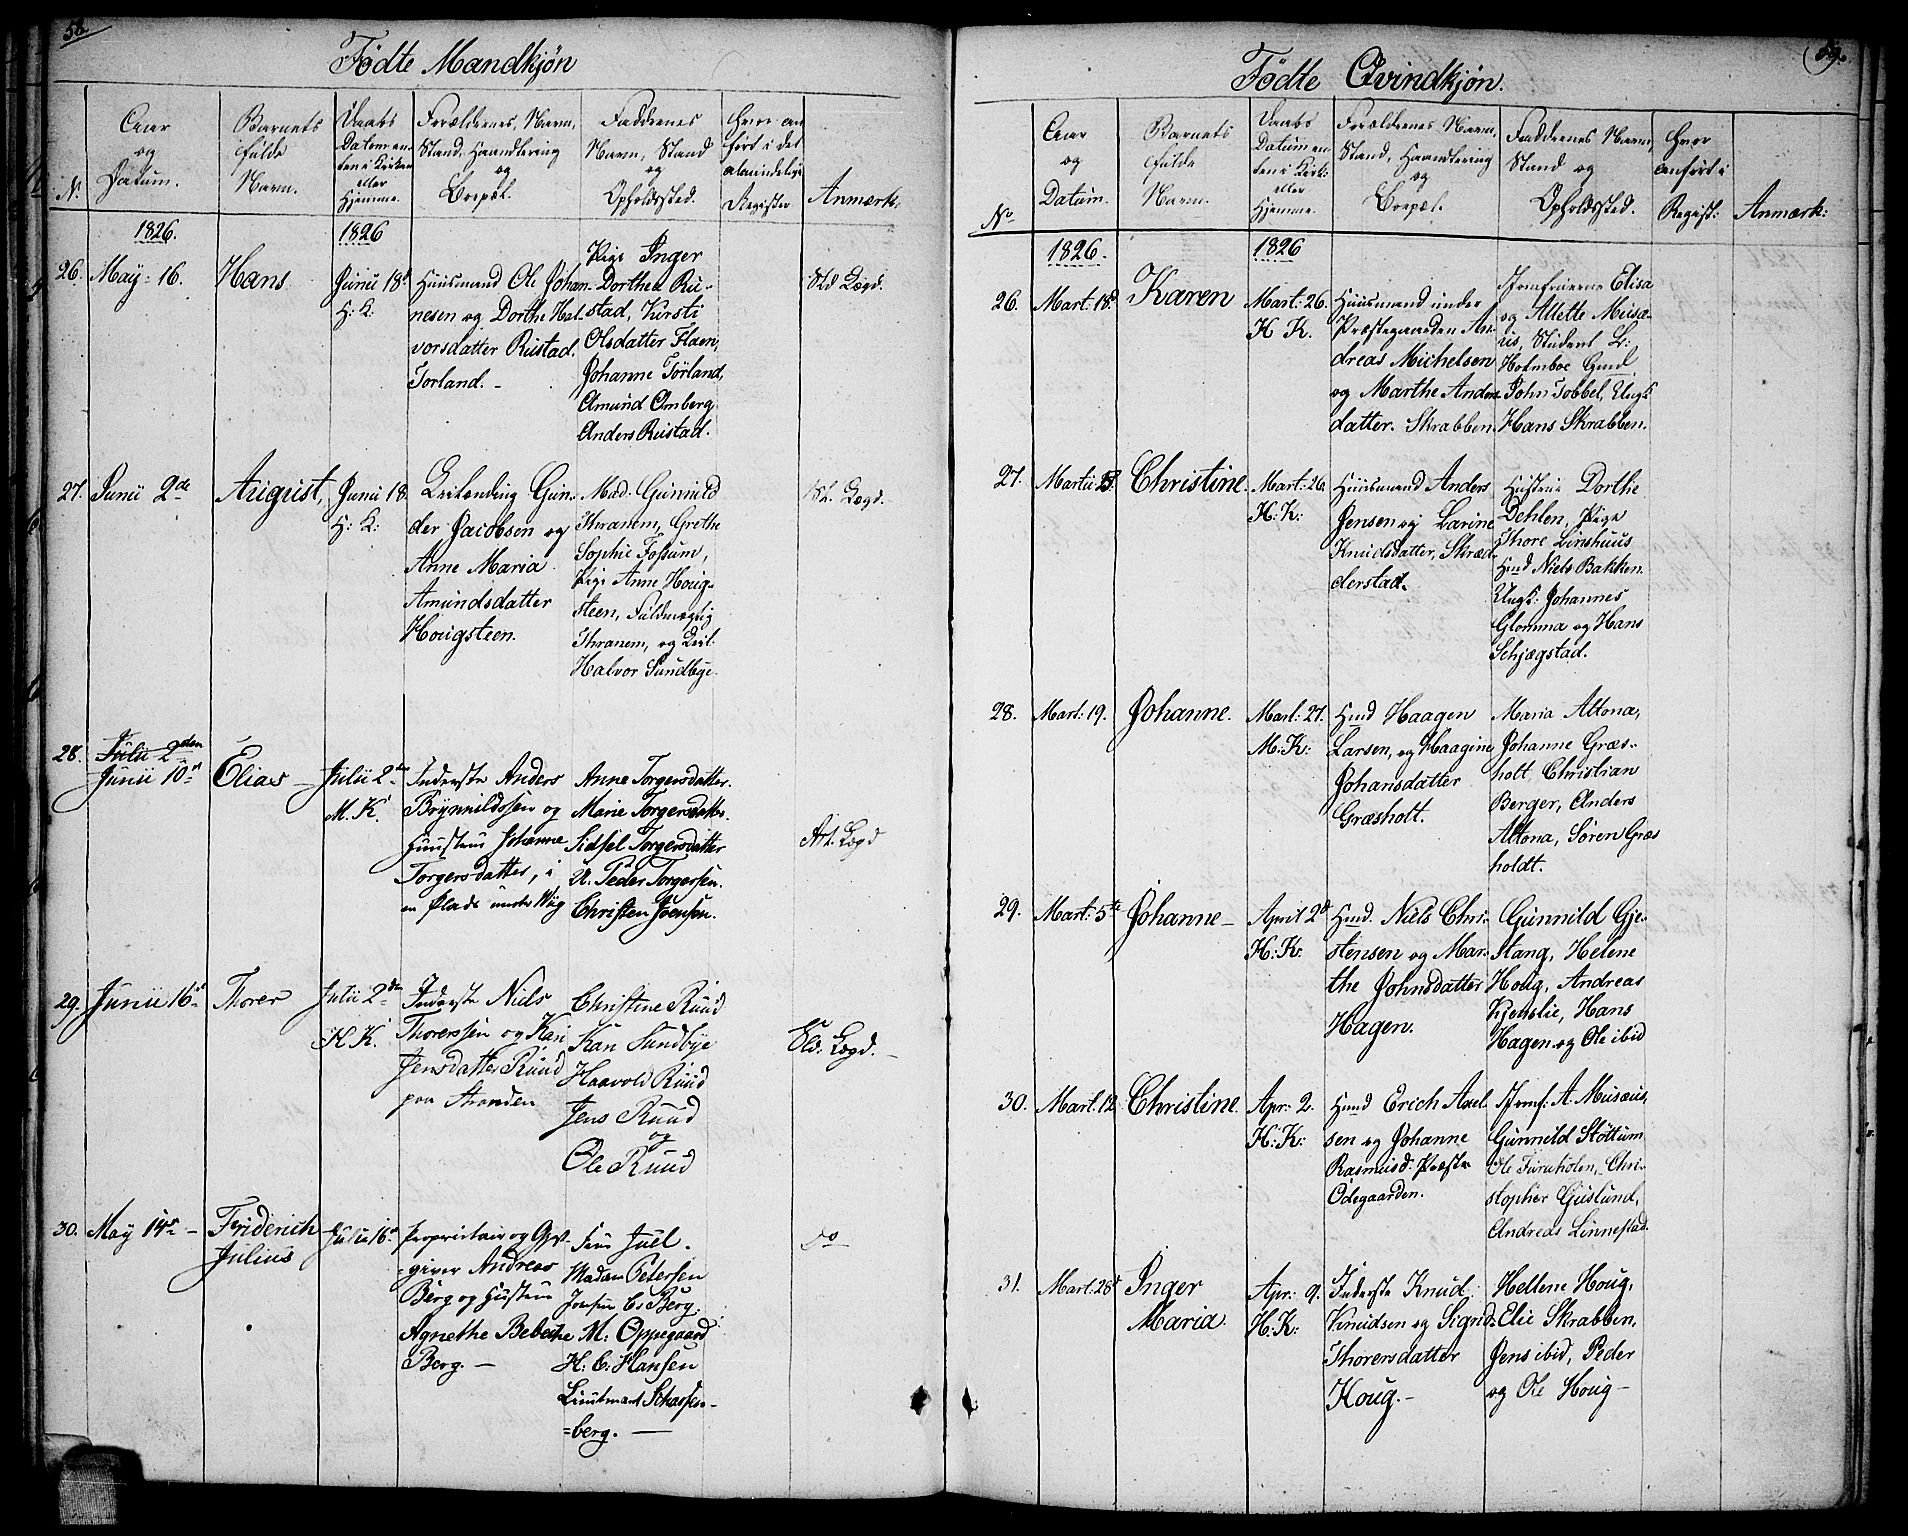 58.
Fødte Mandkjøn
No
Aar
og
Datum.
Barnets
fulde
Navn.
Daabs
Datum en-
ten i Kirken
eller
Hjemme.
Forældrenes Navn,
Stand, Haandtering
og
Boepæl.
Faddernes
Navn, Stand
og
Opholdssted.
Hvor an
ført i det
almindelige
Register
Anmærk.
1826.
1826
26.
May 16.
Hans
Junii 18d
H: K.
Huusmand Ole Johan-
nesen og Dorthe Hal-
vorsdatter Rustad.
Torland.-
Pige Inger
Dorthea Ru-
stad, Kirsti
Olsdatter Flaen,
Johanne Törland,
Amund Omberg
Anders Rustad.
Lægd.
27.
Junii 2de
August,
Junii 18.
H: K:
Gun-
der Jacobsen og
Anne Maria
Amundsdatter
Hougsteen.
Mad. Gunnild
Thranem, Grethe
Sophie Fossum,
Pige Anne Houg-
steen, Fuldmægtig
Thranem, og
Halvor Sundbye.
Lægd.
28.
Julii 2den
Junii 10de
Elias
Julii 2den
M. K.
Inderste Anders
Brynnildssen og
Hustrue Johanne
Torgersdatter, i
en Plads under Wiig
Anne Torgersdatter.
Marie Torgersdatter.
Sidsel Torgersdatter
U. Peder Torgersen.
Christen Joensen.
Art. Lægd
29.
Junii 16de
Thorer
Julii 2den
H. K.
Inderste Niels
Thorerssen og Kari
Jensdatter Ruud
paa Stranden
Christine Ruud
Kari Sundbye
Haavold Ruud
Jens Ruud
og
Ole Ruud
Eld. Lægd.-
30.
May 14de -
Friderich
Julius
Julii 16de
Proprietair og Gjest-
=giver Andreas
Berg og Hustrue
Agnethe Bebe
Berg.-
Frue Juel.
Madam Petersen
Jomfrue C: Berg.
M: Oppegaard
H: C: Hansen
Lieutenant Scharffen-
=berg.-
Do
59.
Fødte Qvindkjøn.
No
Aar
og
Datum.
Barnets
fulde
Navn.
Daabs
Datum en-
ten i Kirk:
eller
Hjemme.
Forældrenes Navn,
Stand, Haandtering
og
Boepæl.
Faddernes Navn,
Stand og
Opholdssted.
Hvor
anført i
Regist:
Anmærk:
1826.
1826
26.
Mart: 18d
Karen
Mart: 26.
H K.
Huusmand under
Præstegaarden An-
dreas Michelsen
og Marthe Anders-
datter. Skrabben.
Jomfruerne Elisa
og Allette Musæ-
us, Student L:
Holmboe Gmd
John Tobbel, Ungk.
Hans Skrabben.
27.
Martii 23.
Christine.
Mart: 26.
H: K:
Huusmand Anders
Jensen og Larine
Knudsdatter, Skræd-
derstad.
Hustrue Dorthe
Dehlen, Pige
Thore Linshuus
Hmd Niels Bakken.
Ungk: Johannes
Glomma og Hans
Schjægstad.
28.
Mart: 19.
Johanne.
Mart: 27.
M: K:
Hmd Haagen
Larsen, og Haagine
Johansdatter
Græsholt.
Maria Altona,
Johanne Græs-
holt, Christian
Berger, Anders
Altona, Søren Græs
holdt.
29.
Mart: 5te
Johanne-
April 2d
H: K:
Hmd. Niels Chri-
stensen og Mar-
the Johnsdatter
Hagen.
Gunnild Gje-
stang, Helene
Houg, Andreas
Kjenslie, Hans
Hagen og Ole ibid
30.
Mart: 12
Christine.
Apr: 2.
H: K:
Hmd Erich Axel
sen og Johanne
Rasmusd: Præste-
Ödegaarden.
Jomf: A. Musæus,
Gunnild Stöttum
Ole Furuholen, Chri-
stopher Gjuslund,
Andreas Linnestad.
31.
Mart: 28d
Inger
Maria.
Apr: 9.
H: K:
Inderste Knud
Knudsen og Signe
Thorersdatter
Houg.-
Hellene Houg,
Elie Skrabben,
Jens ibid, Peder
og Ole Houg-